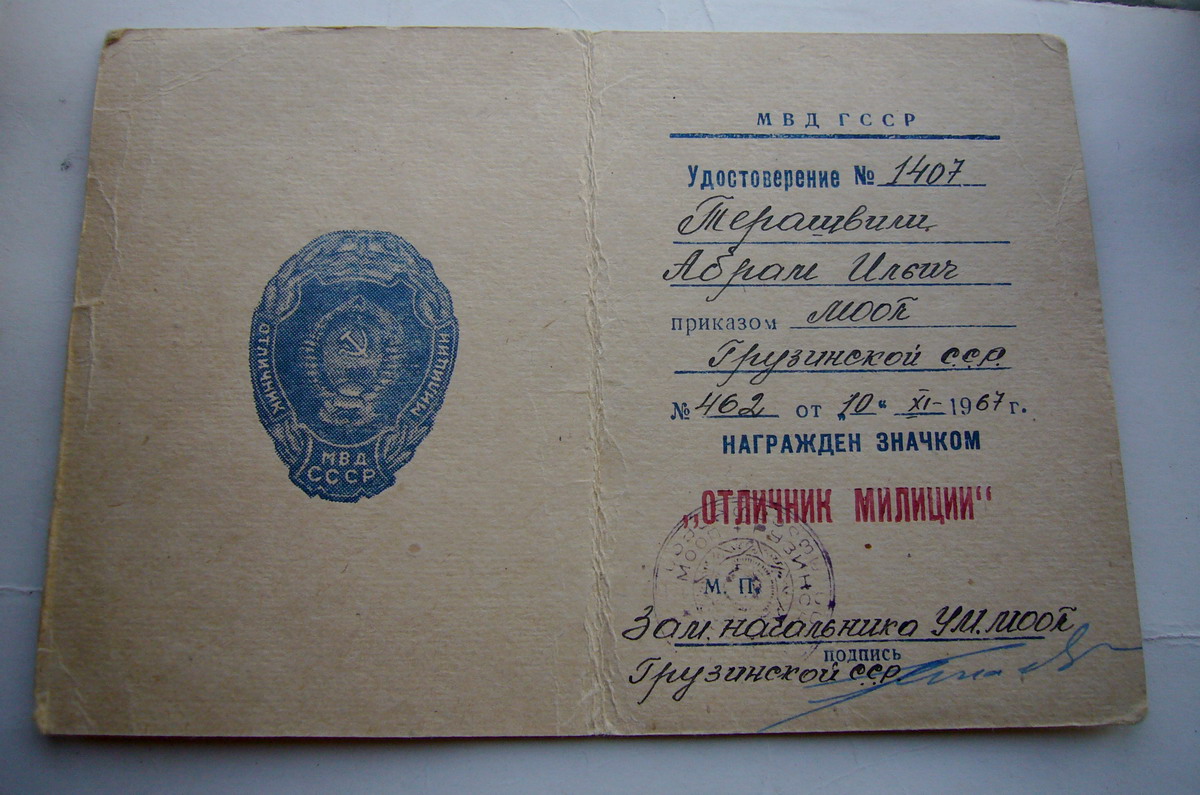 ОТЛИЧНИК
МИЛИЦИИ
МВД
СССР
МВД ГССР
Удостоверение № 1407
Терашвили
Абрам Ильич
приказом МООП
Грузинской ССР.
№ 462 от „10“ XI- 1967 г.
НАГРАЖДЕН ЗНАЧКОМ
„ОТЛИЧНИК МИЛИЦИИ“
М. П.
Зам. начальника УМ. МООП
подпись
Грузинской ССР.